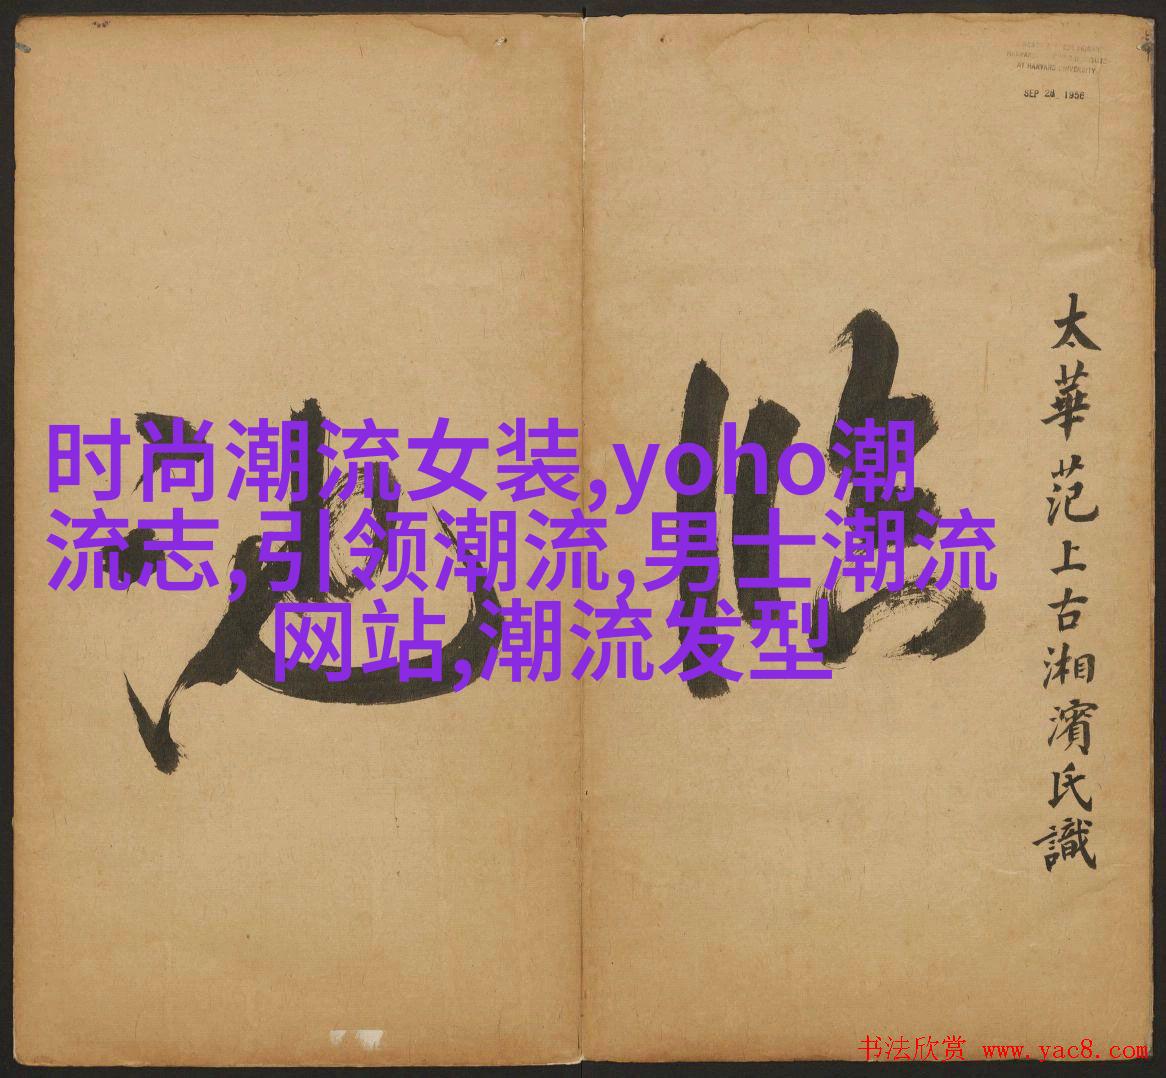 AT HARVARD UNIVERSITY
SEP 28 1956
时尚潮流女装,yoho潮
流志,引领潮流,男士潮流
网站,潮流发型
太華范上古湘濱氏識
书法欣赏 www.yac8.com